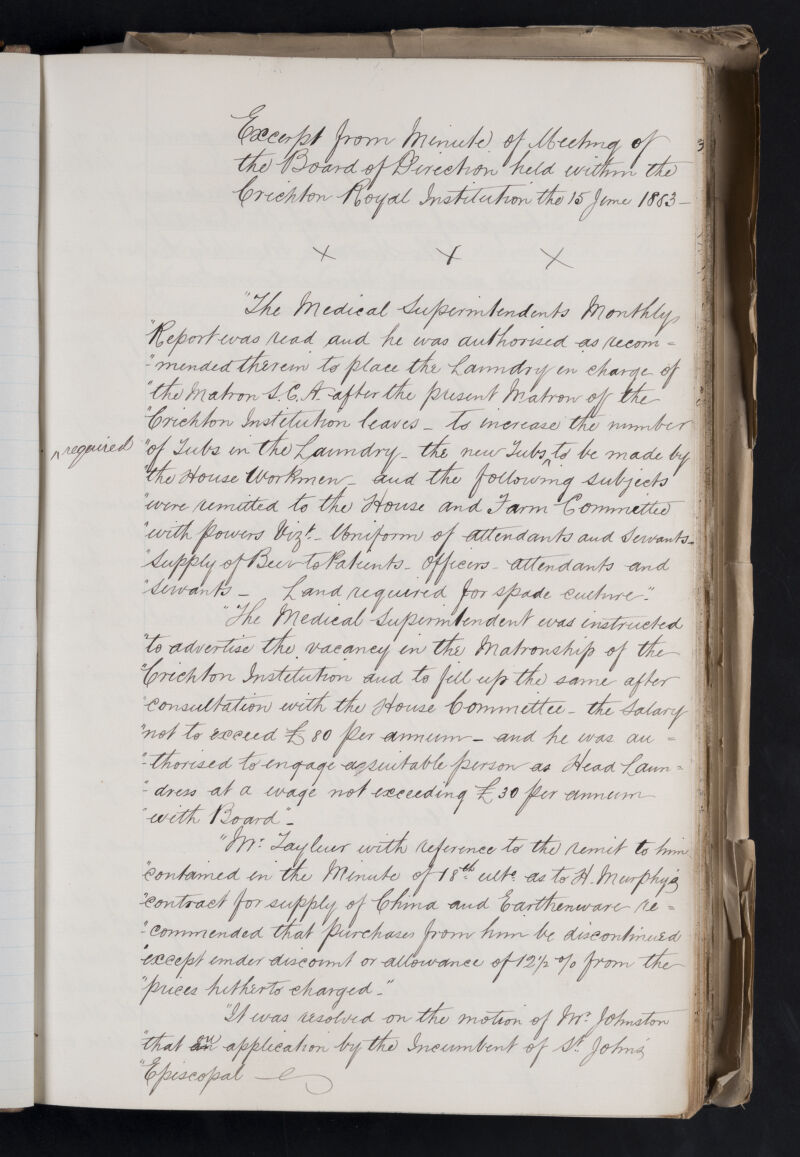 Excerpt from Minute of Meeting of
the Board of Direction held within the
Crichton Royal Institution the 15 June 1883 -
× × ×
"The Medical Superintendents Monthly
"Report was read and he was authorised as recom=
"-mended therein to place the Laundry in charge of
"the Matron S.C.A. after the present Matron of the
"Crichton Institution leaves - to increase the number
^ required
"of Tubs in the Laundry - the new Tubs ^ to be made by
"the House Workmen - and the following subjects
"were remitted to the House and Farm Committee
"with powers Vizt. - Uniform of attendants and Servants -
"Supply of Beer to Patients - Officers - attendants and
"servants - Land required for spade culture."
"The Medical Superintendent was instructed
"to advertise the vacancy in the Matronship of the
"Crichton Institution and to fill up the same after
"consultation with the House Committee - the Salary
"not to exceed £80 per annum - and he was au=
"-thorised to engage a suitable person as Head Laun=
"-dress at a wage not exceeding £30 per annum
"with Board" -
"Mr. Tayleur with reference to the remit to him
"contained in the Minute of 18th. ulto. as to H. Murphy's
"contract for supply of China and Earthenware re=
"-commended that purchases from him be discontinued
"except under discount or allowance of 12½ % from the
"prices hitherto charged."
"It was resolved on the motion of Mr. Johnston
"that an application by the Incumbent of St. John's
"Episcopal
3